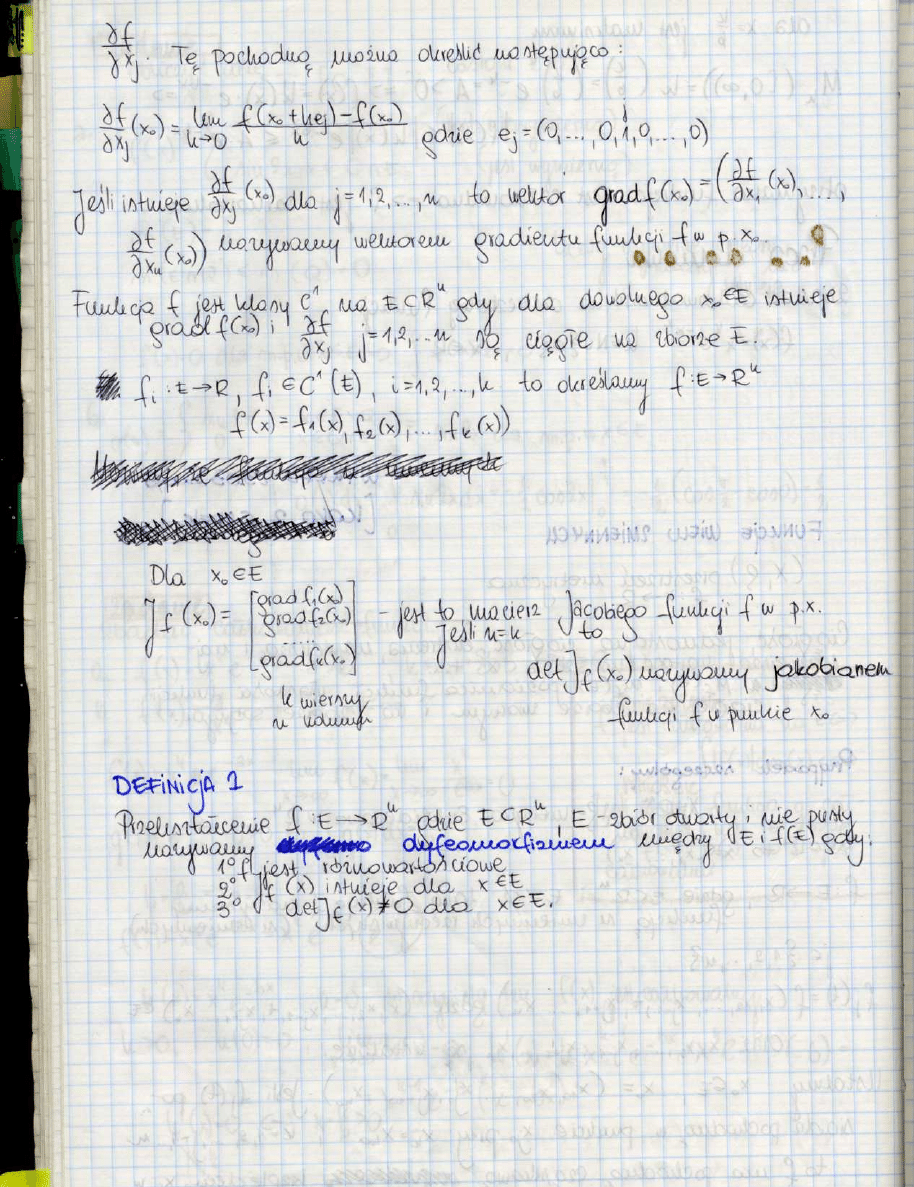 ∂f/∂xj. Tę pochodną można określić następująco:
∂f/∂xj (x₀) = lim h→0 f(x₀ + hej) − f(x₀) / h gdzie ej = (0, ..., 0, 1, 0, ..., 0)
j
Jeśli istnieje ∂f/∂xj (x₀) dla j = 1, 2, ..., n to wektor grad f(x₀) = (∂f/∂x₁ (x₀), ...,
∂f/∂xn (x₀)) nazywamy wektorem gradientu funkcji f w p. x₀.
Funkcja f jest klasy C¹ na E ⊂ Rⁿ gdy dla dowolnego x₀ ∈ E istnieje
grad f(x₀) i ∂f/∂xj j = 1, 2, ... n są ciągłe na zbiorze E.
fi : E → R, fi ∈ C¹(E), i = 1, 2, ..., k to określamy f: E → Rᵏ
f(x) = f₁(x), f₂(x), ..., fk(x))
Dla x₀ ∈ E
Jf (x₀) = [grad f₁(x₀) grad f₂(x₀) ..... grad fk(x₀)] – jest to macierz Jacobiego funkcji f w p.x.
Jeśli n=k to
det Jf (x₀) nazywamy jakobianem
k wierszy
n kolumn
funkcji f w punkcie x₀
DEFINICJA 1
Przekształcenie f : E → Rⁿ gdzie E ⊂ Rⁿ, E – zbiór otwarty i nie pusty
nazywamy dyfeomorfizmem między E i f(E) gdy:
1° f jest różnowartościowe
2° Jf (x) istnieje dla x ∈ E
3° det Jf (x) ≠ 0 dla x ∈ E.